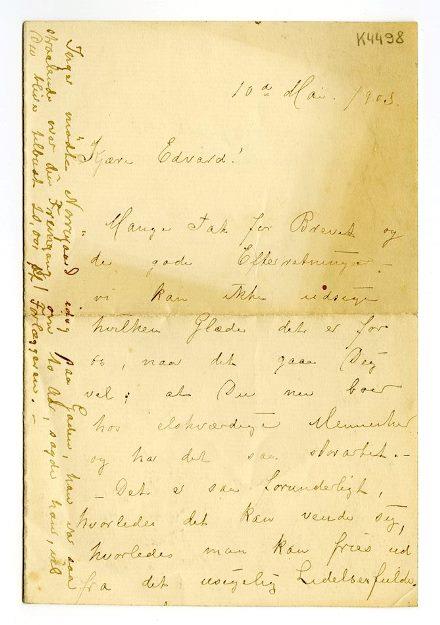 K4498
10de Mai. 1903.
Kjære Edvard!
Mange Tak for Brevet og
de gode Efterretninger –
vi kan ikke udsige
hvilken Glæde det er for
os, naar det gaar Dig
vel; at Du nu boer
hos elskværdige Mennesker
og har det saa storartet. –
– Det er saa forunderligt,
hvorledes det kan vende sig,
hvorledes man kan fries ud
fra det usigelig Lidelsesfulde
mødte Nørregaard idag paa Gaden, han var saa
straalende over din Fremgang, om to Aar, sagde han, vil
Du blive tilbudt 20,000 af Forlæggeren. –